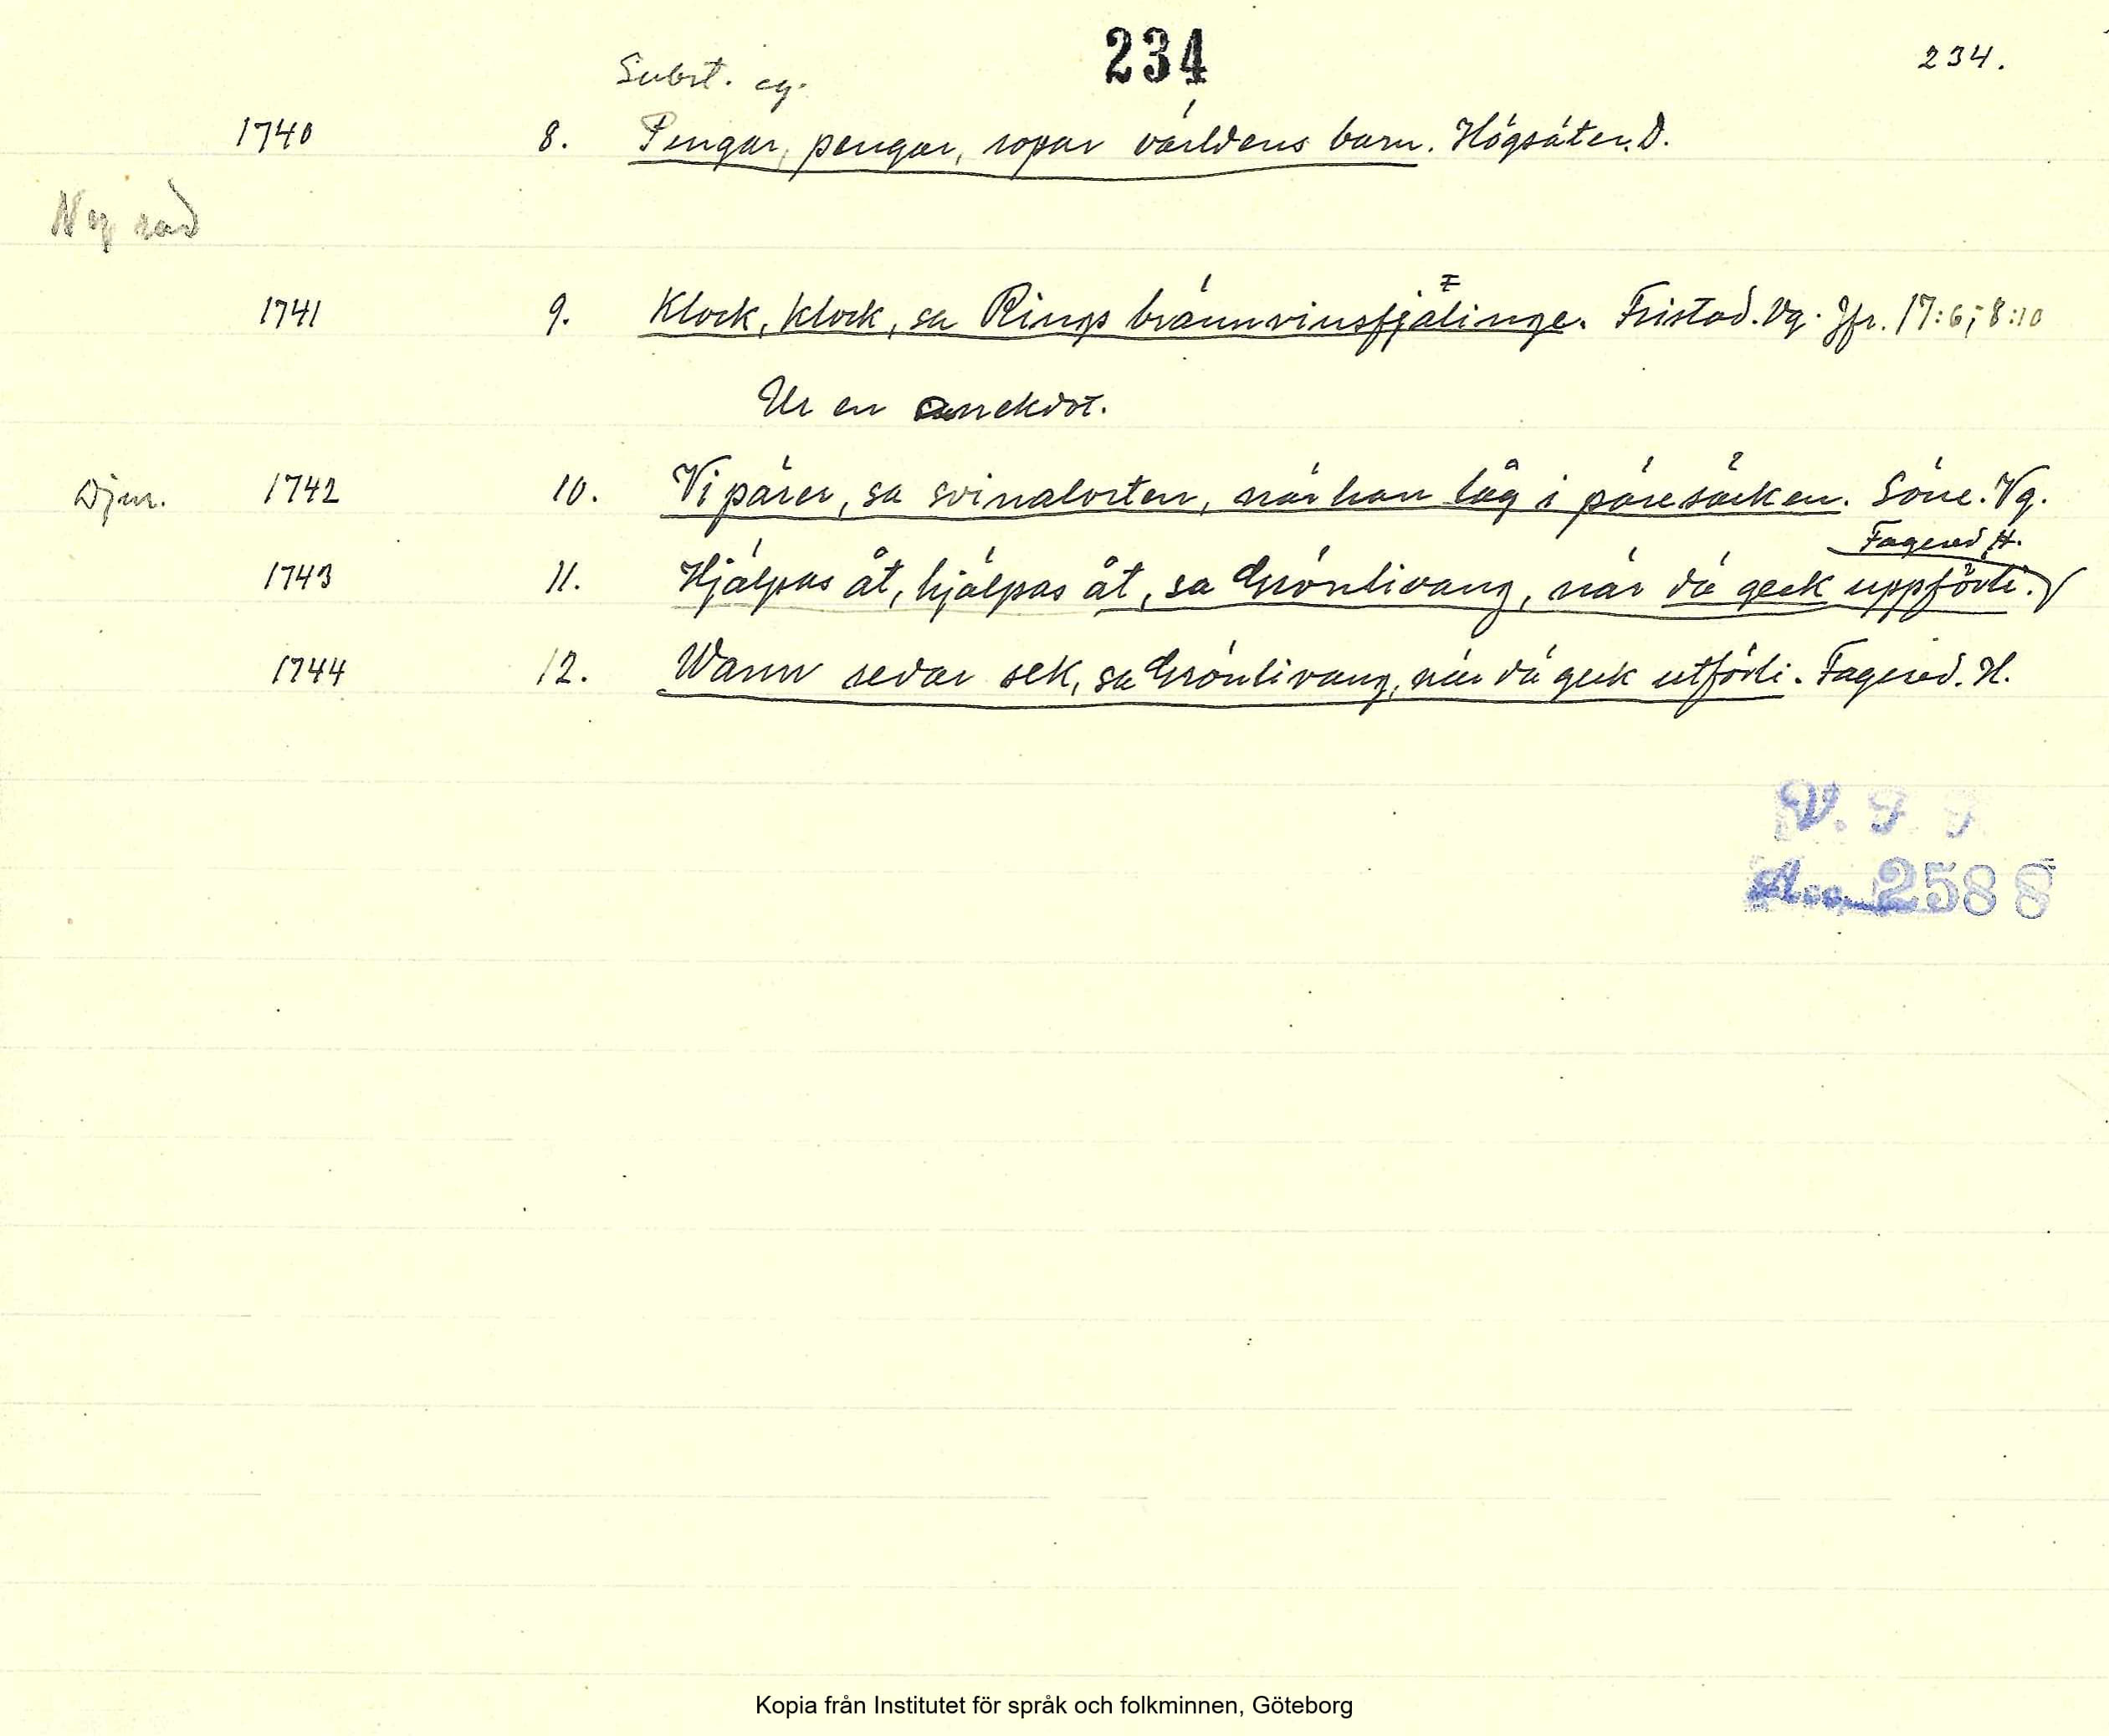 234
234.
Subst. eg.
1740 8. Pengar, pengar, ropar världens barn. Högsäter. D.
Ny rad
1741 9. Klock, klock, sa Rings brännvinsfjälinge. Fristad. Vg. Jfr. 17:6; 8:10
Ur en anekdot.
Djur. 1742 10. Vi pärer, sa svinalorten, när han låg i päresäcken. Söne. Vg.
Fagered H.
1743 11. Hjälpas åt, hjälpas åt, sa Grönlivang, när dä geck uppförli.
1744 12. Warer sedar sek, sa Grönlivang, när dä geck utförli. Fagered. H.
V. F. F.
Acc. 2588
Kopia från Institutet för språk och folkminnen, Göteborg